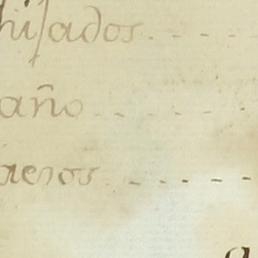 hilados - - - -
año - - - -
aenos - - - -